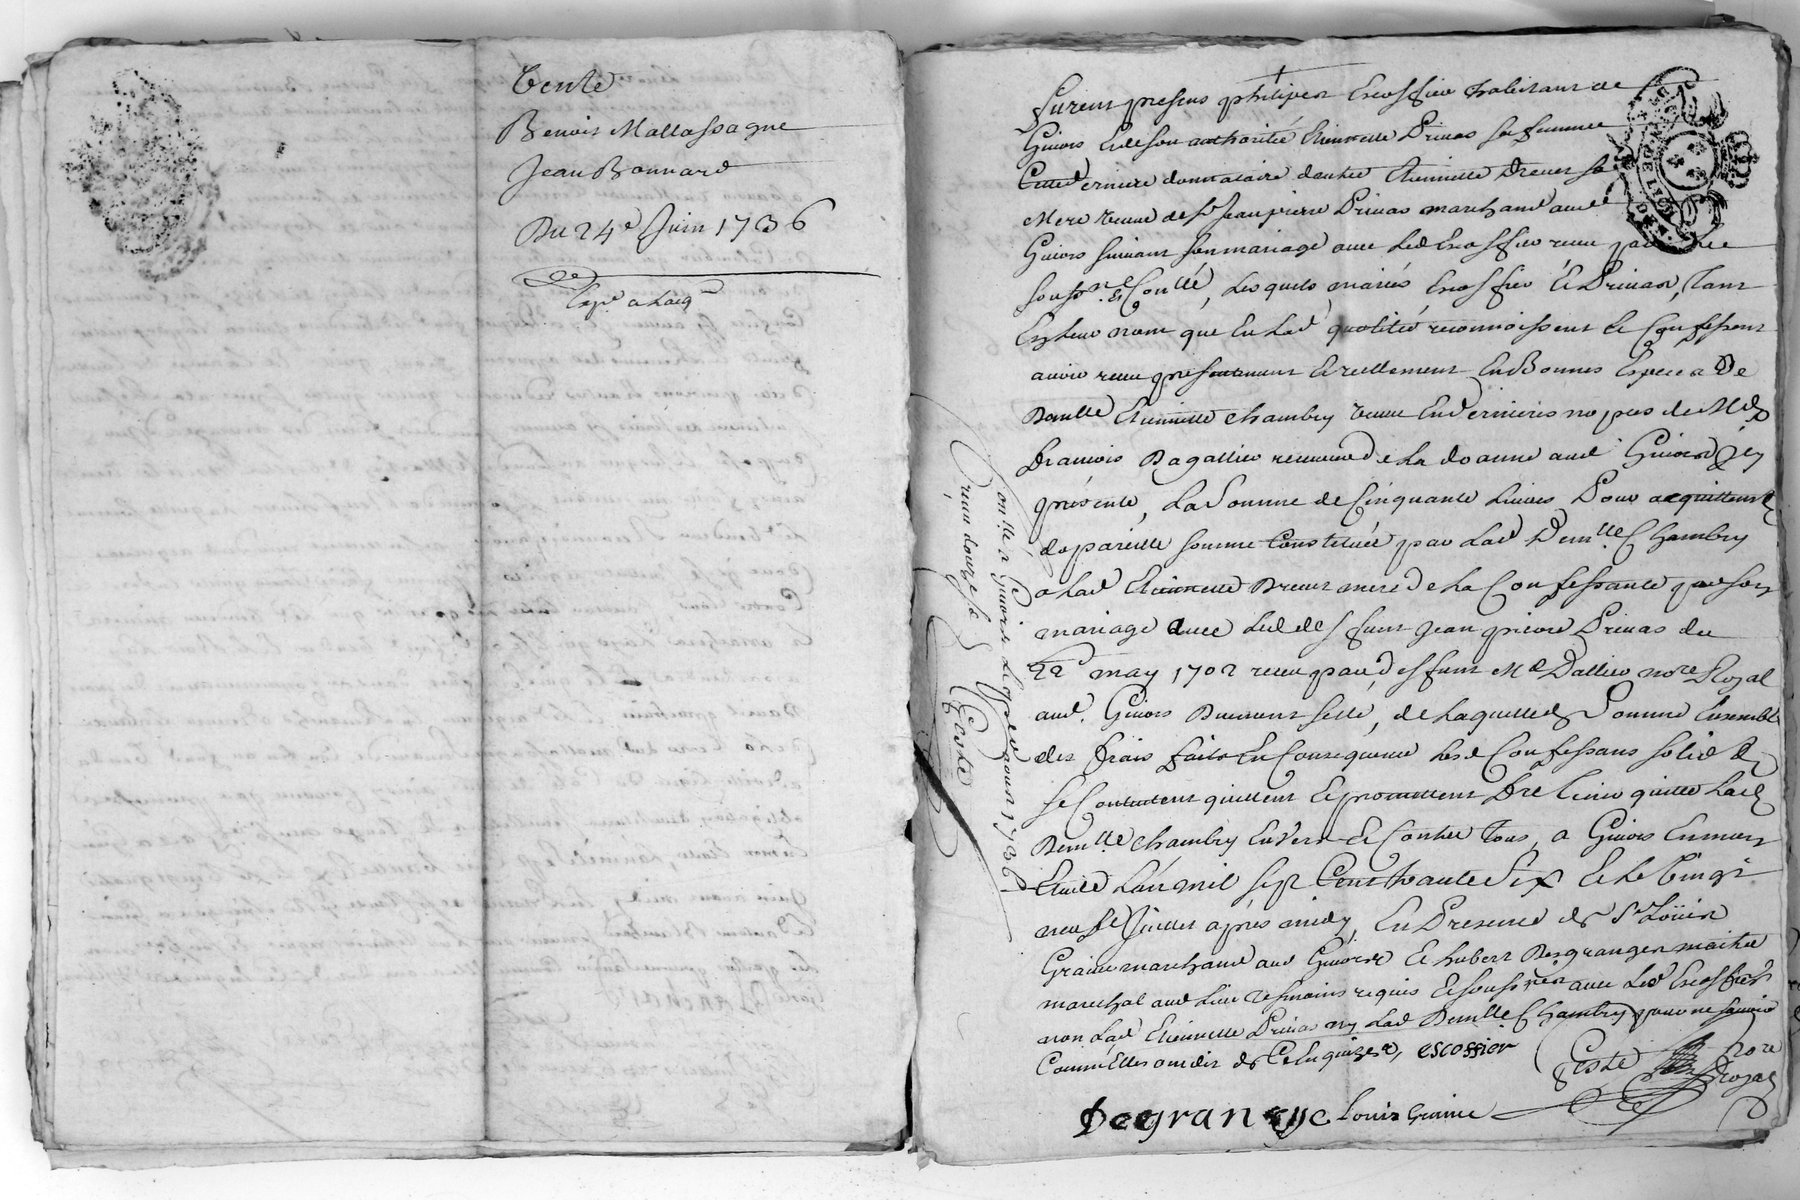 Vente
Benoit Mallassagne
Jean Bonnard
Du 24e Juin 1736
furent presens phillipes Escossier habitant de
Givors Et de son authorité Etiennette Privas sa femme
Cette derniere donnataire de Etiennette Drevet sa
Mere veuve de Sr Jean pierre Privas marchand aud
Givors suivant son mariage avec led Escossier receu par
soussné, Lesquels mariés Escossier Et Privas, Tant
En leur nom que En lad qualitté reconnoissent Et Confessent
avoir receu presentement Et reellement En Bonnes Especes De
Damlle Etiennette Chambry veuve En dernieres nopces de Me
francois Ragallier receveur de La doanne aud Givors
présente, La Somme de Cinquante Livres Pour acquittement
de pareille somme Constituée par Lad Demlle Chambry
a Lad Etiennette Drevet mere de La Confessante par son
mariage avec Led deffunt Jean pierre Privas du
22e may 1702 receu par deffunt Me Dallier nore Royal
aud. Givors Duement sellé, de Laquelle Somme Ensemble
des frais faits En Consequence Lesd Confessans solid
se Contentent quittent Et promettent Tenir quitte Lad
Demlle Chambry Envers Et Contre Tous, a Givors En mon
Etude L'an mil sept Cent trante Six Et Le Vingt
neuf Juillet après midy, En Presence de Sr Loüis
Graine marchand aud Givors Et hubert Desgranges maitre
marechal aud Lieu Tesmoins requis Et soussnés avec Led Escossier
non Lad Etiennette Privas ny Lad Demlle Chambry pour ne sçavoir
Comm'Elles ont dit de Ce Enquizes, escossier
Coste nore
Royal
Degrange Louis Graine
Conlle a Givors Le 1736
receu douze s
Coste